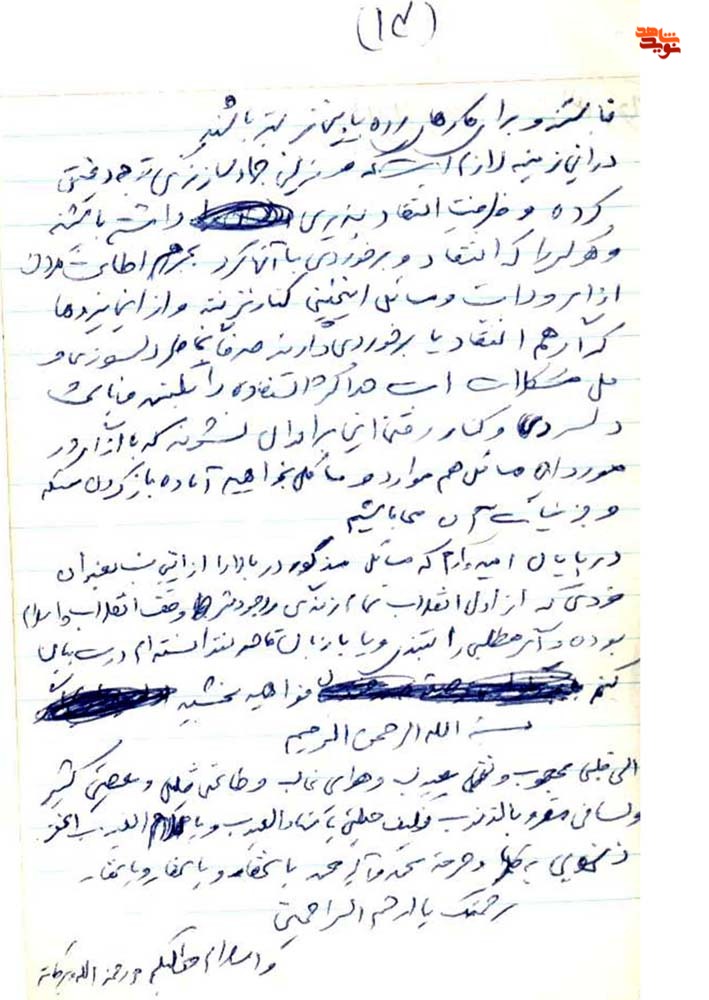 (۱۴)
نوید شاهد
قابلتر و برای کارهای رده پایین‌تر بهتر باشند
در این زمینه لازم است که مسئولین جهاد سازندگی توجه دقیقی
کرده و ظرفیت انتقاد پذیری داشته باشند
و هرکس را که انتقاد و برخوردی با آنها کرد بجرم
از امورات و مسائل اینچنینی کنار نزنند و از این نیروها
که اگر هم انتقاد یا برخوردی دارند صرفاً بخاطر دلسوزی و
حل مشکلات است حداکثر استفاده را بکنند
دلسردی و کنار رفتن این برادران نشوند که
مورد این مسائل هم موارد و بخواهید آماده باز کردن مسئله
و جزئیات آن می‌باشیم
در پایان امیدوارم که مسائل مذکور در بالا را از اینجانب بعنوان
فردی که از اول انقلاب تمام زندگی و وجودش وقف انقلاب و اسلام
بوده و اگر مطلبی را تند و یا با زبان قاصر نتوانسته‌ام درست بیان
کنم خواهید بخشید
بسم الله الرحمن الرحیم
الهی قلبی محجوب و نفسی معیوب و هوای غالب و طاعتی قلیل و معصیتی کثیر
و لسانی مقر بالذنوب فکیف حیلتی یا ستار العیوب و یا علام الغیوب اغفر
ذنوبی کلها و حرمة محمد و آل محمد یا غفار و یا غفار و یا غفار
برحمتک یا ارحم الراحمین
والسلام علیکم و رحمة الله و برکاته